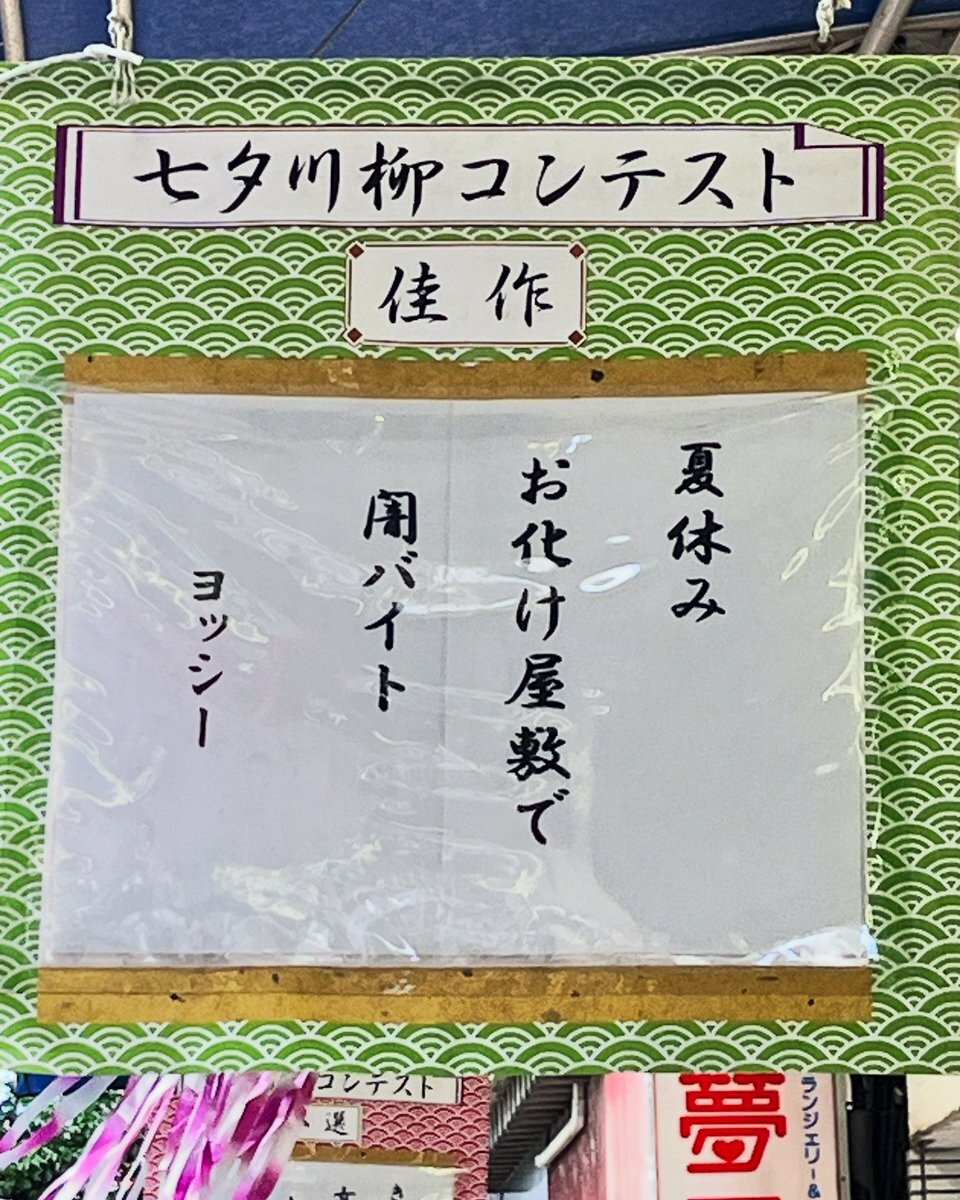 七夕川柳コンテスト
佳作
夏休み
お化け屋敷で
闇バイト
ヨッシー
コンテスト
選
夢
ランジェリー&